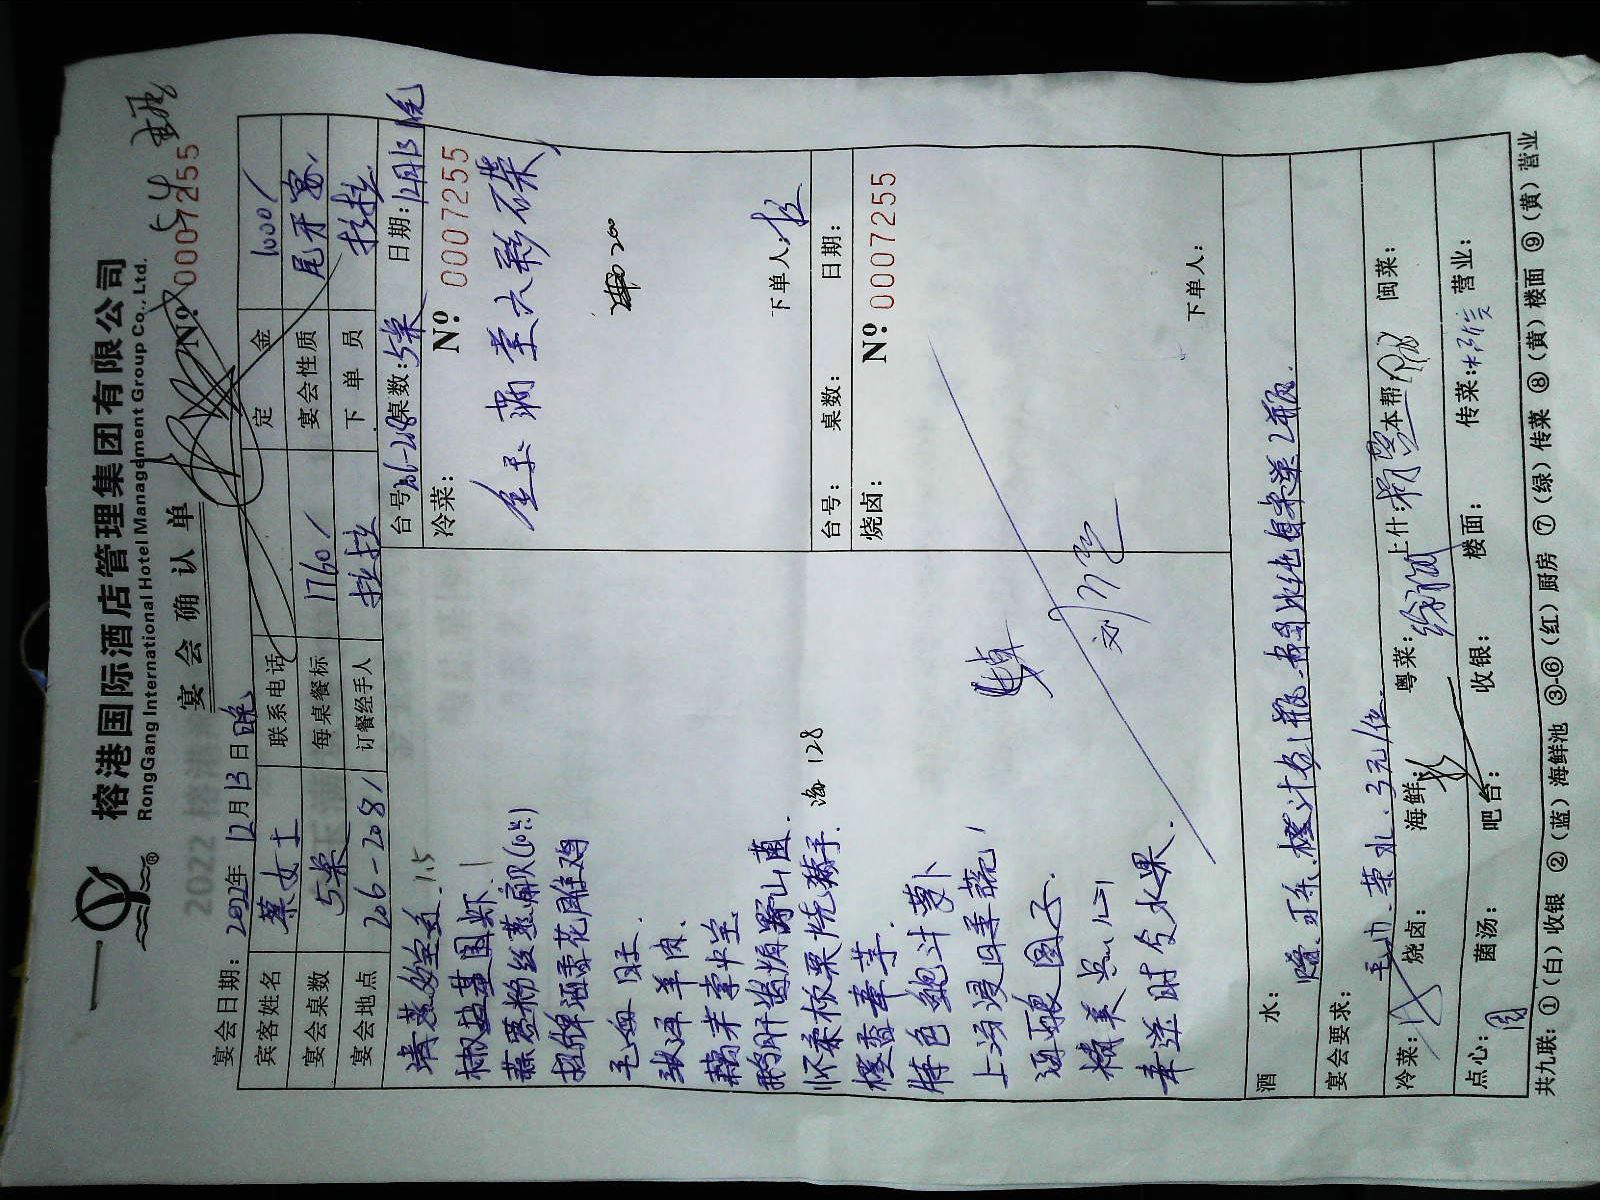 榕港国际酒店管理集团有限公司
RongGang International Hotel Management Group Co., Ltd.
宴会确认单
№ 0007255
宴会日期：2022年12月13日晚
宾客姓名 蔡女士 联系电话 定金 1000/
宴会桌数 5桌 每桌餐标 1760/ 宴会性质 尾牙宴
宴会地点 206-208/ 订餐经手人 拉拉 下单员 拉拉
台号 206-208 桌数：5桌 日期：12月13晚
冷菜：
№ 0007255
金玉满堂六彩碟
200
下单人：
清蒸多宝鱼 1.5
椒盐基围虾 1
蒜蓉粉丝蒸扇贝(10只)
招牌酒香花雕鸡
毛血旺
羊肉
鹅肝酱焗野山菌
怀柔板栗烧辽参 海128
橙香
特色鲍汁萝卜
上汤浸四季蔬
酒酿圆子
精美点心
奉送时令水果
台号： 桌数： 日期：
烧卤：
№ 0007255
下单人：
酒水：
赠：可乐、橙汁各1瓶 每桌送2瓶
宴会要求：
毛巾、茶水、3元/位
冷菜： 烧卤： 海鲜： 粤菜： 上什： 本帮： 闽菜：
点心： 菌汤： 吧台： 收银： 楼面： 传菜： 营业：
共九联：①(白)收银 ②(蓝)海鲜池 ③-⑥(红)厨房 ⑦(绿)传菜 ⑧(黄)楼面 ⑨(黄)营业